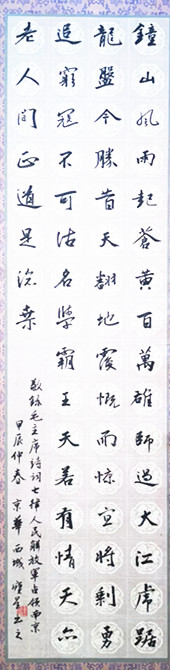 鐘山風雨起蒼黃百萬雄師過大江虎踞
龍盤今勝昔天翻地覆慨而慷宜將剩勇
追窮寇不可沽名學霸王天若有情天亦
老人間正道是滄桑
敬錄毛主席詩詞七律人民解放軍占領南京
甲辰仲春京華西城